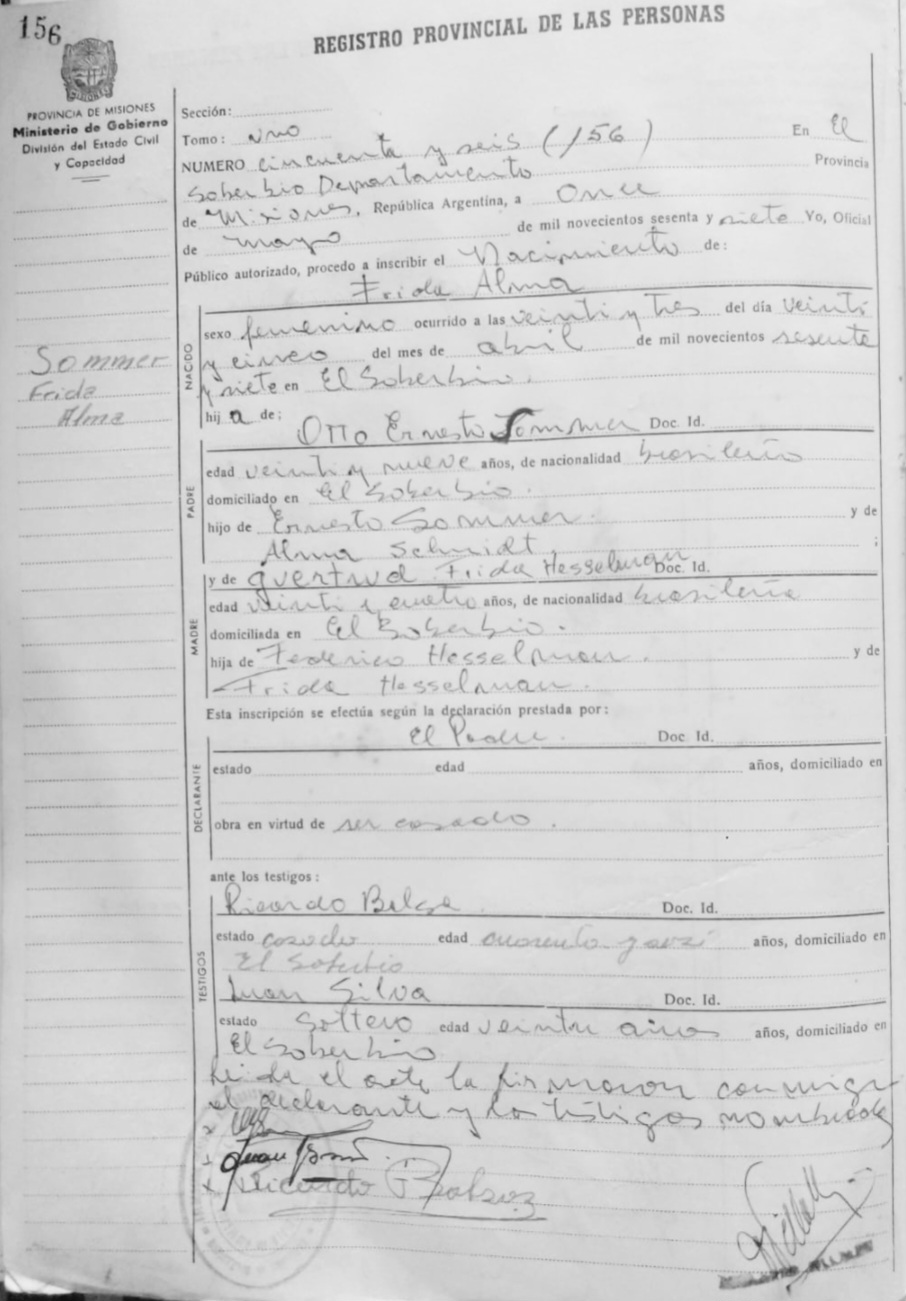 156
REGISTRO PROVINCIAL DE LAS PERSONAS
PROVINCIA DE MISIONES
Ministerio de Gobierno
División del Estado Civil
y Capacidad
Sección:
Tomo: uno En El
NUMERO cincuenta y seis (156)
Soberbio Departamento Provincia
de Misiones, República Argentina, a once
de mayo de mil novecientos sesenta y siete Yo, Oficial
Público autorizado, procedo a inscribir el Nacimiento de:
Frida Alma
NACIDO
sexo femenino ocurrido a las veinti y tres del día veinti
y cinco del mes de abril de mil novecientos sesenta
y siete en El Soberbio.
Sommer
Frida
Alma
hija de:
Otto Ernesto Sommer Doc. Id.
PADRE
edad veinti y nueve años, de nacionalidad brasileño
domiciliado en El Soberbio.
hijo de Ernesto Sommer. y de
Alma Schmidt, ;
MADRE
y de Guertrud Frida Hesselman Doc. Id.
edad veinti y cuatro años, de nacionalidad brasileña
domiciliada en El Soberbio.
hija de Federico Hesselman. y de
Frida Hesselman.
Esta inscripción se efectúa según la declaración prestada por:
El Padre. Doc. Id.
DECLARANTE
estado edad años, domiciliado en
obra en virtud de ser casado.
ante los testigos:
Ricardo Doc. Id.
TESTIGOS
estado casado edad cuarenta y años, domiciliado en
El Soberbio
Juan Silva Doc. Id.
estado Soltero edad años, domiciliado en
El Soberbio
Leida el acta la firmaron conmigo
el declarante y los testigos nombrados
Juan
Ricardo